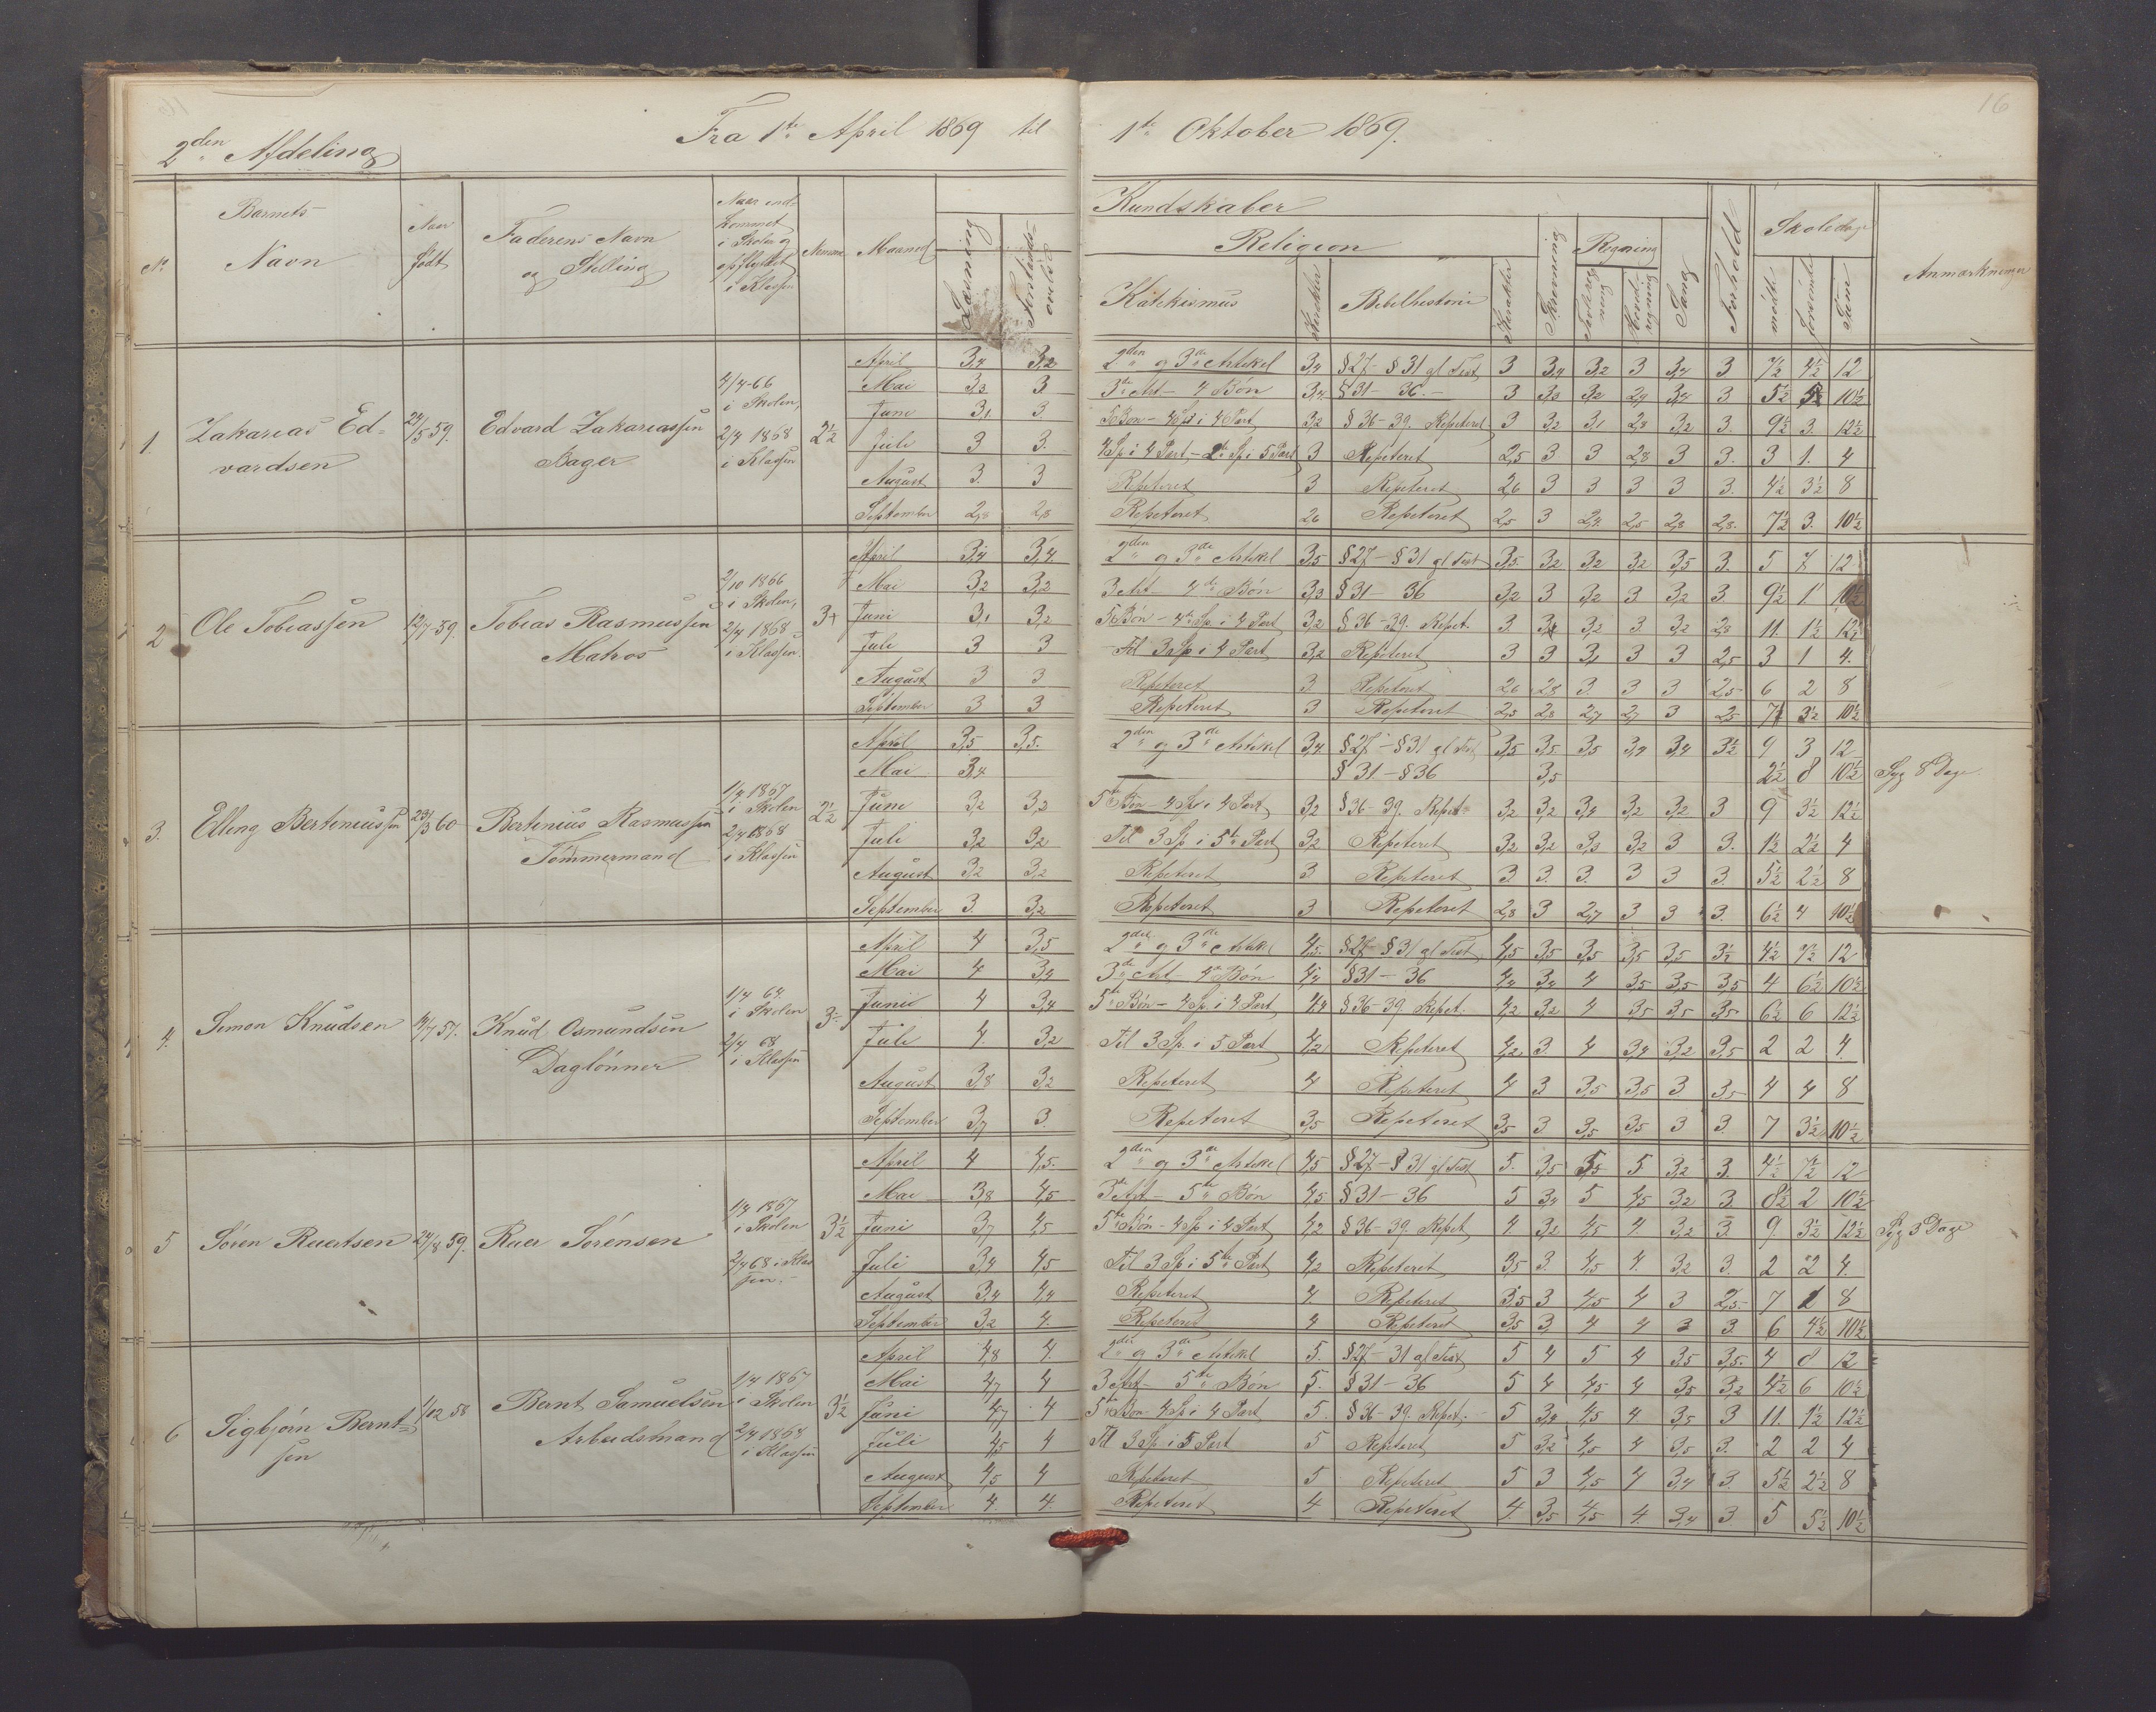 16
2den Afdeling
Fra 1ste April 1869 til 1ste Oktober 1869.
No. Barnets Navn Naar født Faderens Navn og Stilling Naar indkommet i Skolen og opflyttet i Klassen Maaned Læsning
Kundskaber Religion Katekismus Karakter Bibelhistorie Karakter Skrivning Regning Sang Forhold Skoledage mødt forsømte Sum Anmærkninger
1. Zakarias Edvardsen 24/5 59. Edvard Zakariassen Bager 4/4-66 i Skolen, 2/4 1868 i Klassen 2½
April 3,4 3,2 2den og 3die Artikel 3,4 §27-§31 gl Test 3 3,4 3,2 3 3,4 3 7½ 4½ 12
Mai 3,3 3 3die Art- 4 Bøn 3,4 §31-36.- 3 3,3 3,2 2,9 3,4 3 5½ 5 10½
Juni 3,1 3. 5 Bøn- 4 Sp i 4 Part 3,2 §36-39. Repeteret 3 3,2 3,1 2,8 3,2 3. 9½ 3. 12½
Juli 3 3. 4 Sp i 4 Part- 2 Sp i 5 Part 3 Repeteret 2,5 3 3 2,8 3 3. 3 1. 4
August 3. 3 Repeteret 3 Repeteret 2,6 3 3 3 3 3. 4½ 3½ 8
September 2,8 2,8 Repeteret 2,6 Repeteret 2,5 3 2,4 2,5 2,8 2,8. 7½ 3. 10½
2 Ole Tobiassen 12/7-59. Tobias Rasmussen Matros 2/10 1866 i Skolen, 2/4 1868 i Klassen. 3+
April 3,4 3,4. 2den og 3die Artikel 3,5 §27-§31 gl Test 3,5. 3,2 3,2 3,2 3,5 3. 5 7 12
Mai 3,2 3,2 3 Art- 4de Bøn 3,3 §31-36 3,2 3 3,2 3 3,2 3. 9½ 1 10½
Juni 3,1 3,2 5 Bøn- 4de Sp. i 4 Part 3,2 §36-39. Repet. 3. 3,1 3,2 3. 3,2 2,8 11. 1½ 12½
Juli 3 3 Til 3 Sp i 4 Part 3,2 Repeteret 3 3 3,1 3 3 2,5 3 1 4.
August 3 3 Repeteret 3 Repeteret 2,6 2,8 3. 3 3 2,5 6 2 8
September 3 3 Repeteret 3 Repeteret 2,5 2,8 2,7 2,7 3 2,5 7 3½ 10½
3. Elling Berteniussen 23/3 60 Bertenius Rasmussen Tømmermand 1/4 1867 i Skolen 2/4 1868 i Klassen 2½
April 3,5 3,5. 2den og 3die Artikel 3,4 §27-§31 gl Test 3,5 3,5. 3,5 3,4 3,4 3½ 9 3 12
Mai 3,4 §31-§36 3,5 2½ 8 10½ Syg 8 Dage.
Juni 3,2 3,2 5te Bøn- 4 Sp i 4 Part 3,2 §36-39. Repet. 3,2 3,2 3,4 3,2 3,2 3 9 3½ 12½
Juli 3,2 3,2 Til 3 Sp i 5te Part 3,2 Repeteret 3,2 3,2 3,3 3,2 3 3. 1½ 2½ 4
August 3,2 3,2 Repeteret 3 Repeteret 3 3. 3. 3 3 3. 5½ 2½ 8
September 3. 3,2 Repeteret 3 Repeteret 2,8 3 2,7 3 3 3. 6½ 4 10½
4. Simon Knudsen 4/7 57. Knud Osmundsen Daglønner 1/4 64. i Skolen 2/4 68 i Klassen
April 4 3,5 2den og 3die Artikel 4,5. §27-§31 gl Test 4,5 3,5 3,5 3,5 3,5 3½ 4½ 7½ 12
Mai 4 3,4 3die Art- 4de Bøn 4,4 §31-36 4,4 3,4 4 3,5 3,5 3,5 4 6½ 10½
Juni 4 3,4 5te Bøn- 4 Sp. i 4 Part 4,4 §36-39. Repet. 4,2 3,2 4 3,5 3,5 3,5 6½ 6 12½
Juli 4. 3,2 Til 3 Sp. i 5 Part 4,2 Repeteret 4,2 3. 4 3,4 3,2 3,5 2 2 4.
August 3,8 3,2 Repeteret 4 Repeteret 4 3 3,5 3,5 3 3,5 4 4 8
September 3,7 3. Repeteret 3,5 Repeteret 3,5 3 3,5 3,5 3 3. 7 3½ 10½
5 Søren Ruertsen 24/8 59. Ruer Sørensen 1/4 1867 i Skolen 2/4 68 i Klassen.- 3½
April 4 4,5. 2den og 3die Artikel 4,5 §27-§31 gl Test 5. 3,5 3,5 5 3,2 3. 4½ 7½ 12
Mai 3,8 4,5 3die Art- 5te Bøn 4,5 §31-36 5 3,4 5 4,5 3,2 3. 8½ 2 10½
Juni 3,7 4,5 5te Bøn- 4 Sp i 4 Part 4,2 §36-39. Repet. 4. 3,2 4,5 4. 3,2 3. 9. 3½ 12½ Syg 3 Dage
Juli 3,4 4,5 Til 3 Sp i 5te Part 4,2 Repeteret 3,5 3. 4,5 4. 3,2 3. 2 2 4.
August 3,4 4,4 Repeteret 4 Repeteret 3,5 3 4,5 4 3 2,5. 7 1 8
September 3,2 4. Repeteret 4 Repeteret 3,5 3, 4 4 3 3. 6 4½ 10½
6 Sigbjørn Berntsen 1/12 58 Bernt Samuelsen Arbeidsmand 1/4 1867 i Skolen 2/4 1868 i Klassen 3½
April 4,8 4. 2den og 3die Artikel 5. §27-31 gl Test 5 4 5 4 3,5 3,5. 4 8 12
Mai 4,7 4 3 Art- 5te Bøn 5. §31-36 5 4 4,5 4 3,5 3,2 4½ 6 10½
Juni 4,7 4 5te Bøn- 4 Sp i 4 Part 5. §36-39. Repet. 5 3,4 4,5 4. 3,5 3 11. 1½ 12½
Juli 4,5 4 Til 3 Sp. i 5 Part 5 Repeteret 5 3,2 4,5 4 3,5 3. 2 2 4
August 4,5 4 Repeteret 5 Repeteret 5 3 4,5 4 3,4 3. 5½ 2½ 8
September 4. 4. Repeteret 4 Repeteret 4 3,5 4,5 4. 3,4 3 5 5½ 10½